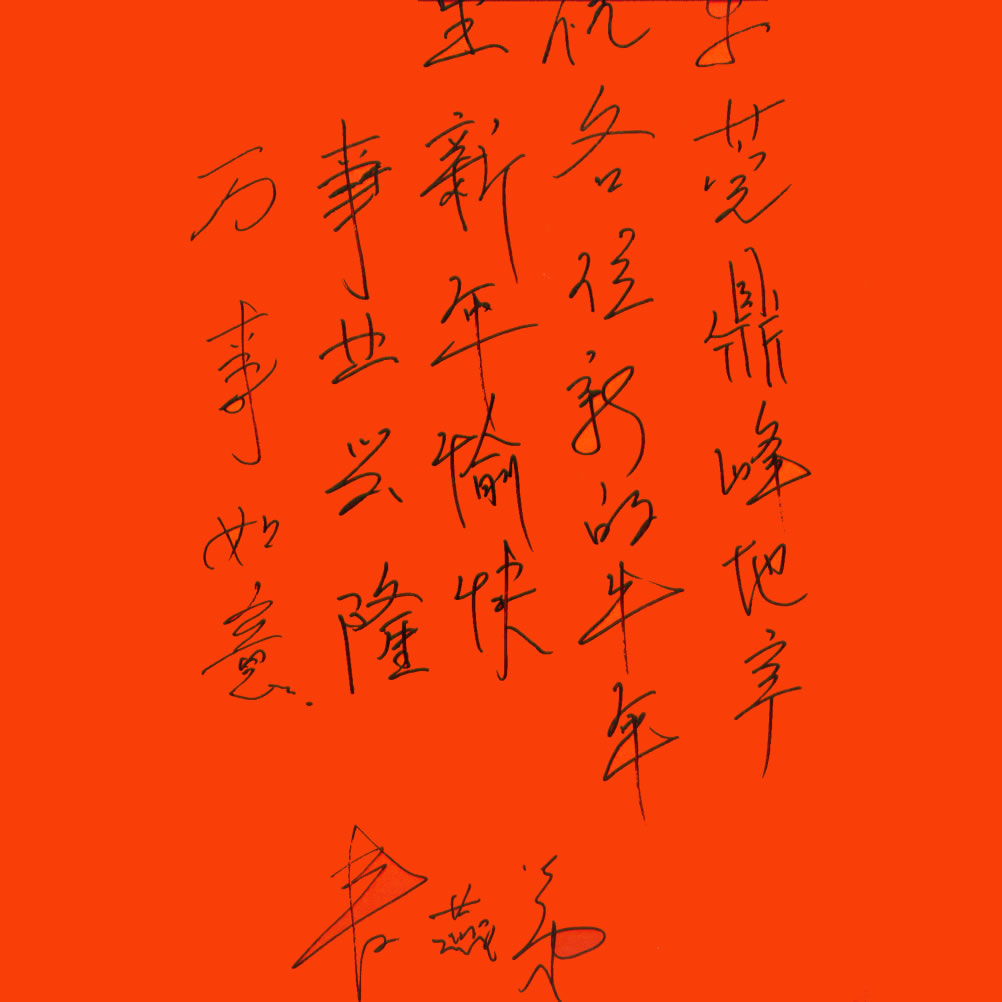 东莞鼎峰地产
祝各位新的牛年
里新年愉快
事业兴隆
万事如意.